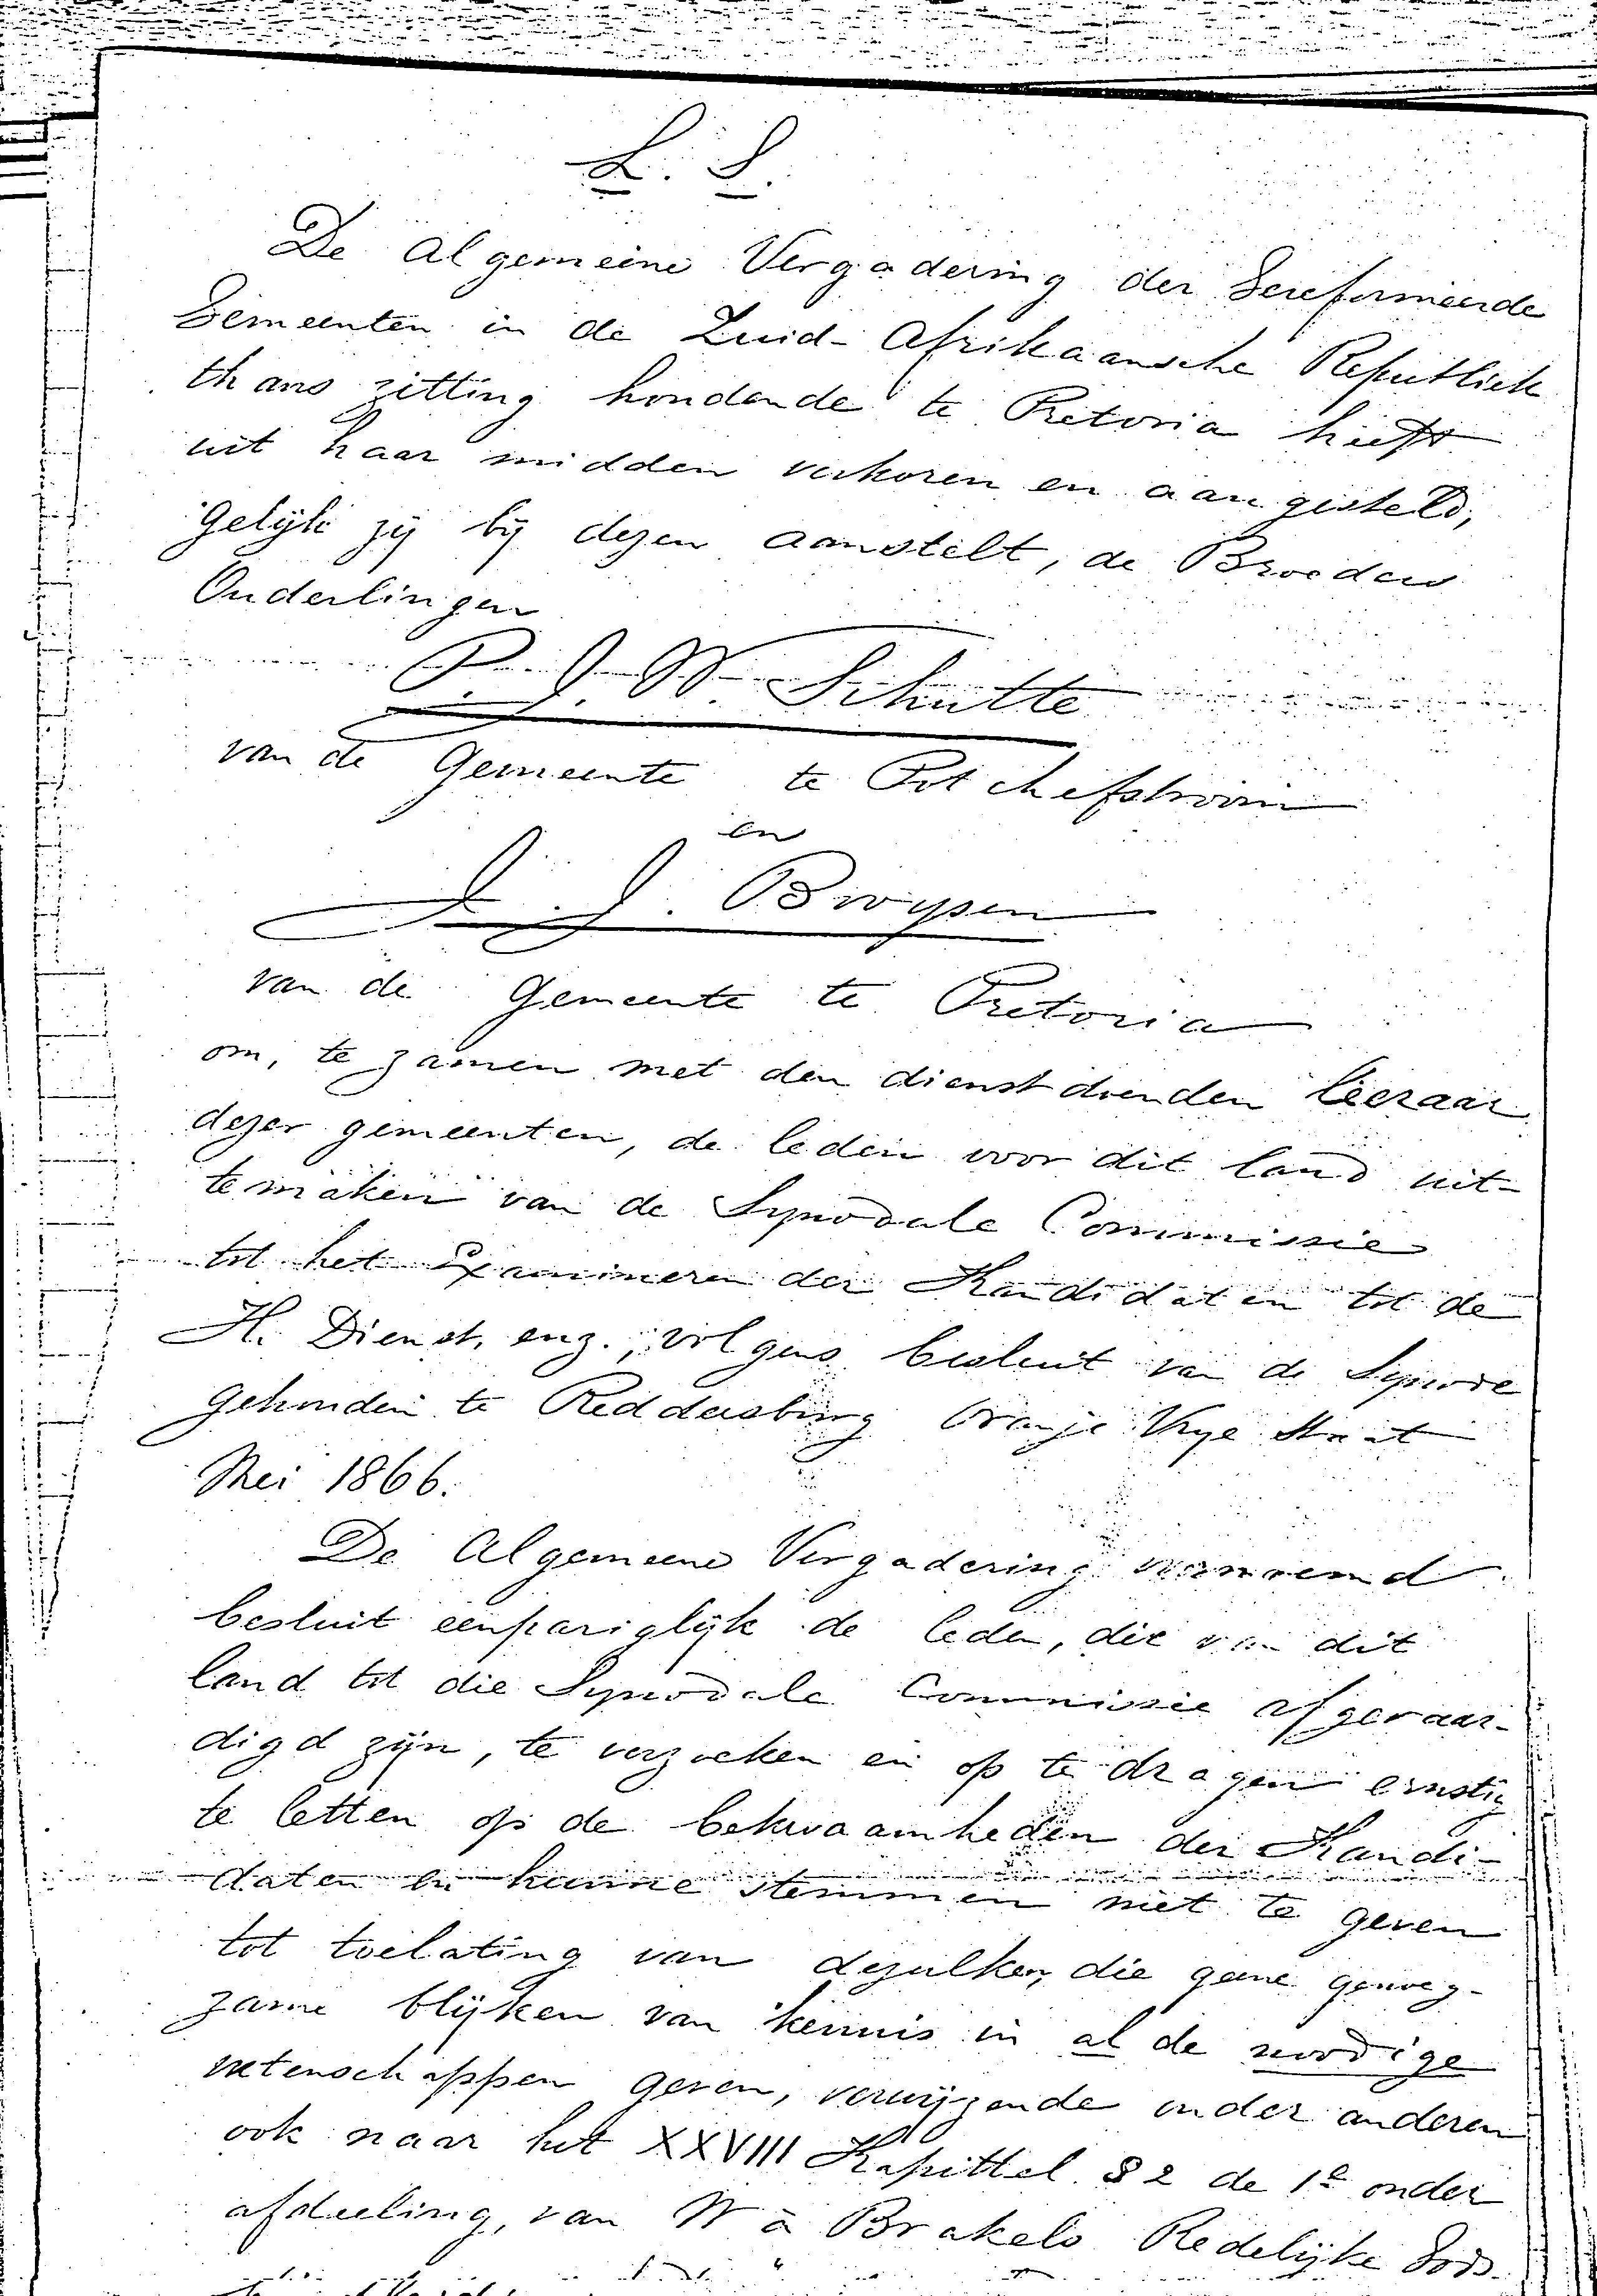 L. S.
De Algemeene Vergadering der Gereformeerde
Gemeenten in de Zuid-Afrikaansche Republiek
thans zitting houdende te Pretoria heeft
uit haar midden verkoren en aangesteld,
Gelijk zij bij dezen aanstelt, de Broeders
Ouderlingen
P. J. W. Schutte
van de Gemeente te Potchefstroom
en
J. J. Booysen
van de Gemeente te Pretoria
om, te zamen met den dienstdoenden leeraar
dezer gemeenten, de leden voor dit land uit-
te maken van de Synodale Commissie
tot het Examineren der Kandidaten tot de
H. Dienst, enz., volgens besluit van de Synode
Gehouden te Reddersburg Oranje Vrye Staat
Mei 1866.
De Algemeene Vergadering voornoemd
besluit eenpariglijk de leden, die van dit
land tot die Synodale Commissie afgevaar-
digd zijn, te verzoeken en op te dragen ernstig
te letten op de bekwaamheden der Kandi-
daten en hunne stemmen niet te geven
tot toelating van dezulken, die geene genoeg-
zame blijken van kennis in al de noodige
wetenschappen geven, verwijzende onder anderen
ook naar het XXVIII Kapittel § 2 de 1e onder
afdeeling, van W à Brakels Redelijke Gods-